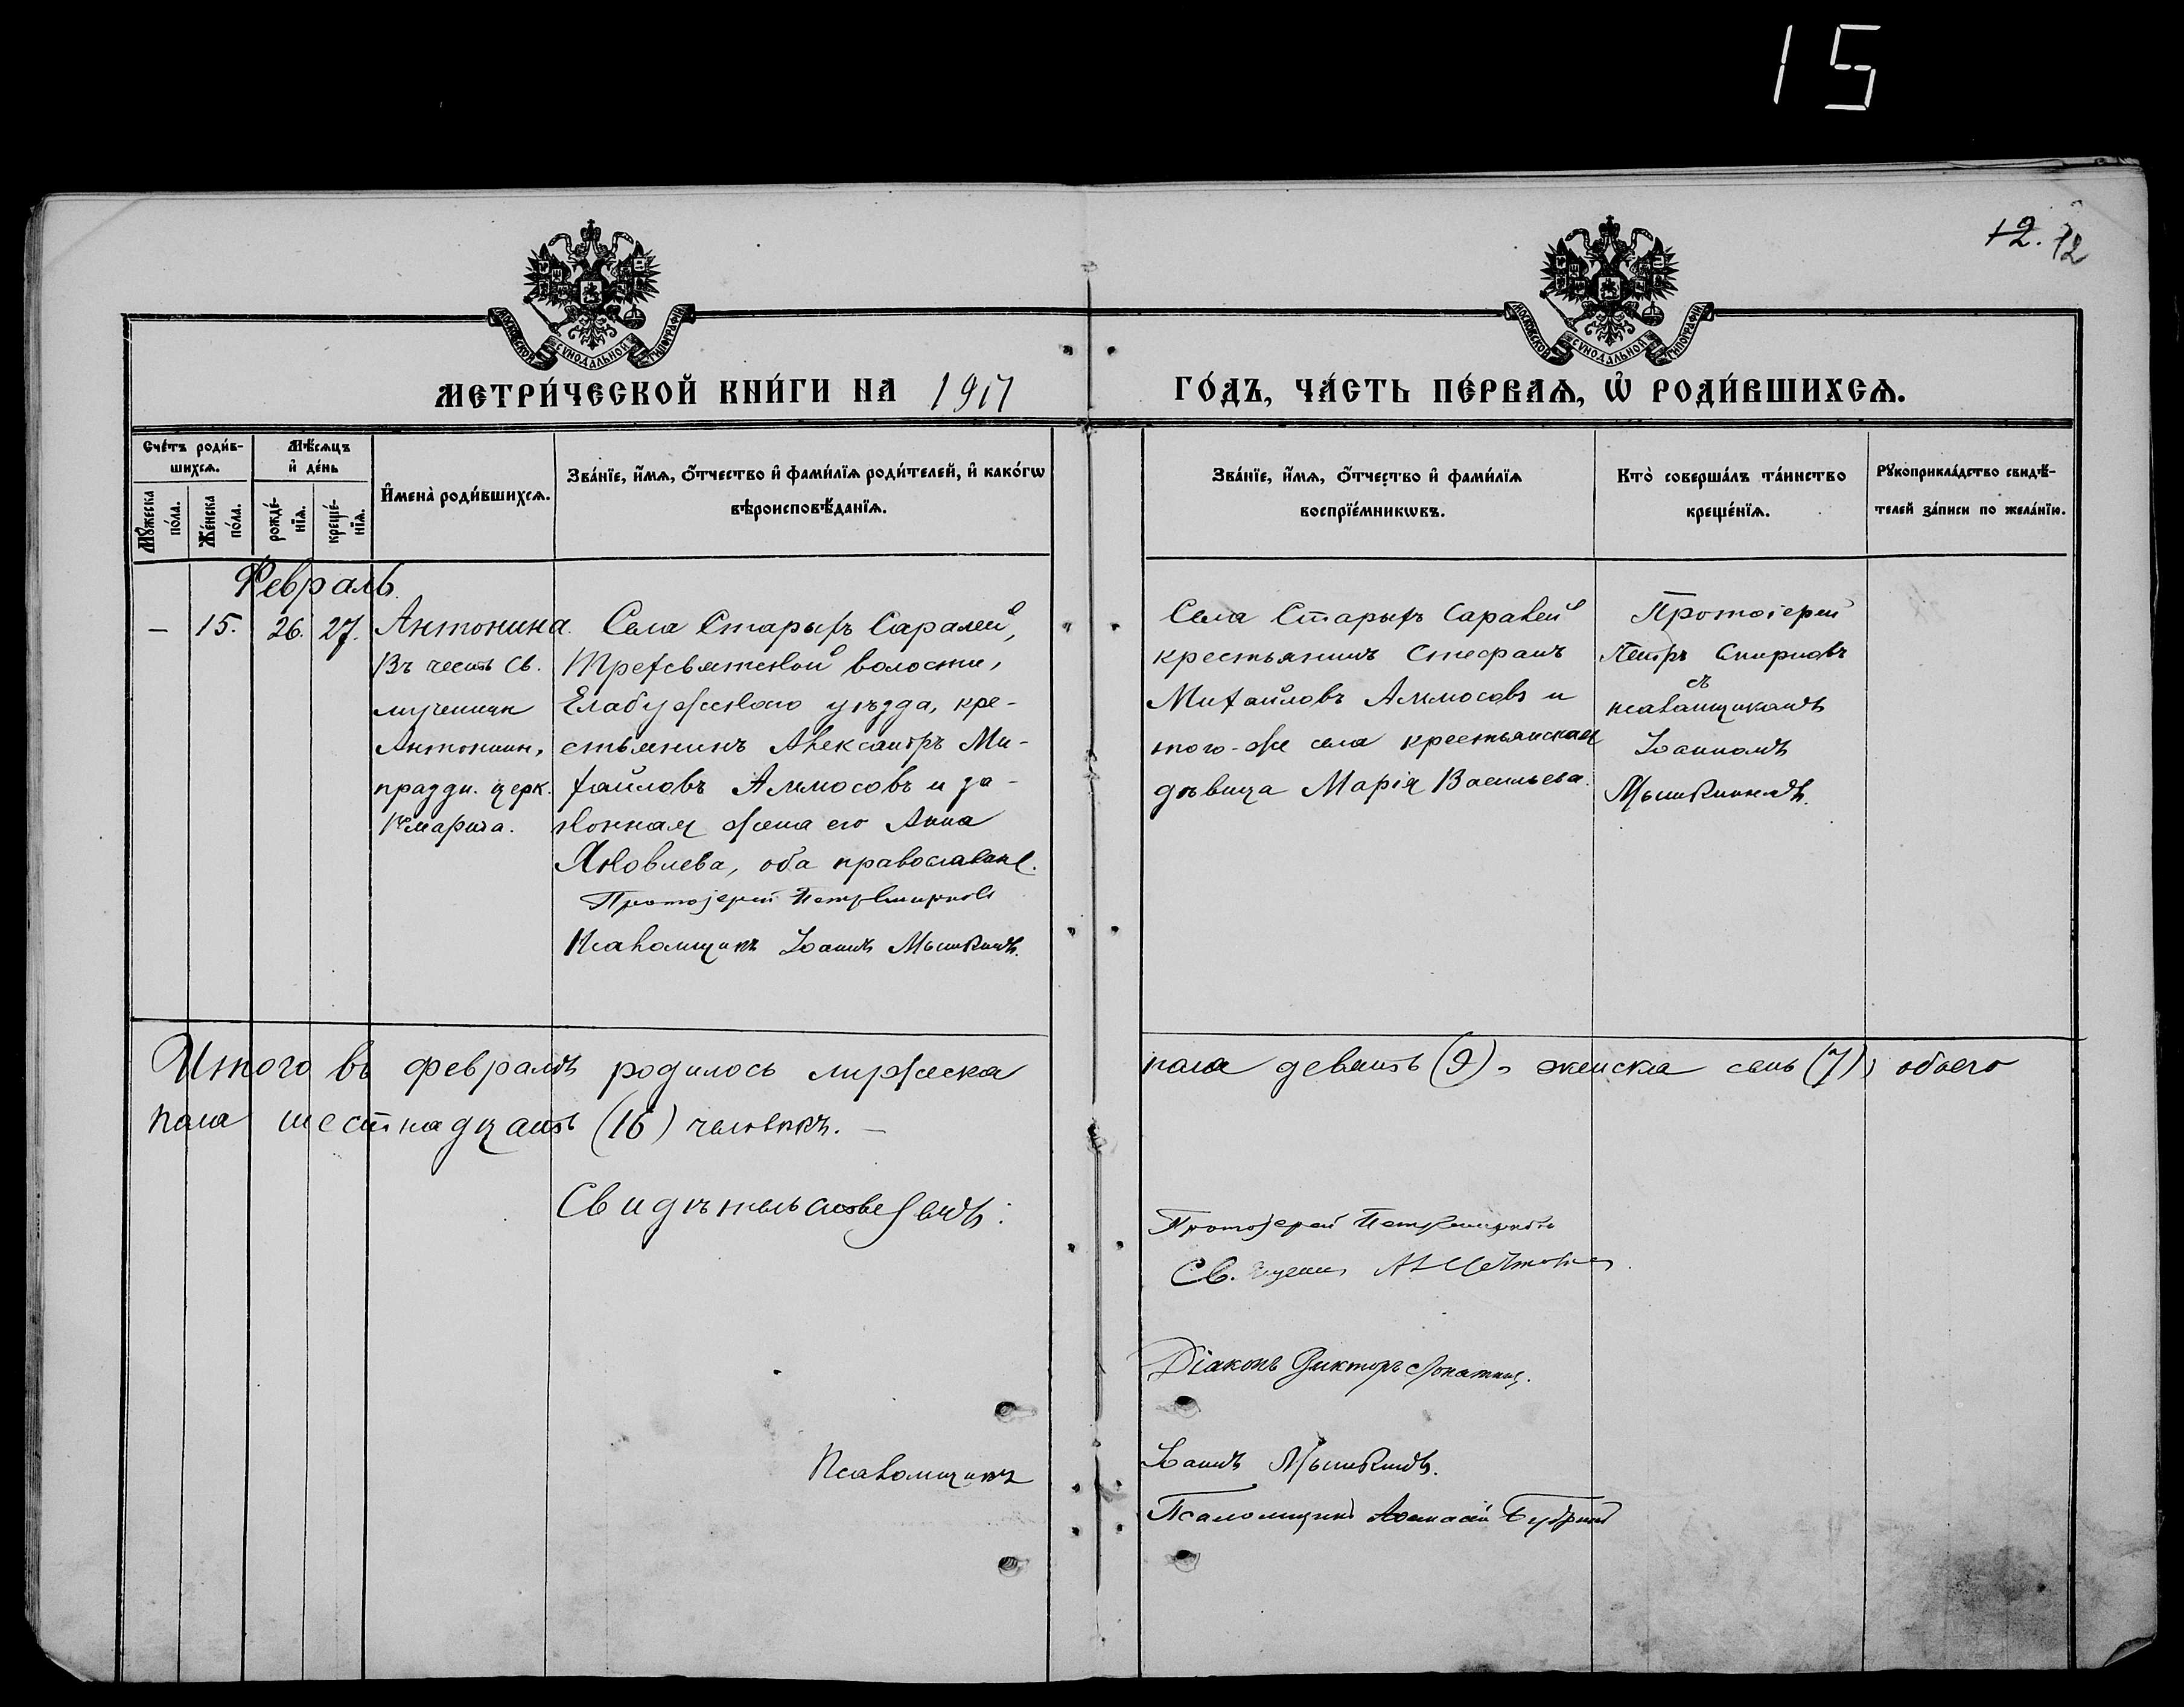 15
12. 12
МОСКОВСКОЙ СѴНОДАЛЬНОЙ ТИПОГРАФІИ
МОСКОВСКОЙ СѴНОДАЛЬНОЙ ТИПОГРАФІИ
МЕТРИ́ЧЕСКОЙ КНИ́ГИ НА 1917
ГО́ДЪ, ЧА́СТЬ ПЕ́РВАѦ, Ѡ҆ РОДИ́ВШИХСѦ.
Сче́тъ роди́в-
шихсѧ.
Мѣ́сѧцъ
и҆ де́нь
Мꙋ́жеска
по́ла.
Же́нска
по́ла.
рожде́-
нїѧ.
креще́-
нїѧ.
И҆мена̀ роди́вшихсѧ.
Зва́нїе, и҆́мѧ, о҆́тчество и҆ фами́лїѧ роди́телей, и҆ како́гѡ
вѣроисповѣ́данїѧ.
Зва́нїе, и҆́мѧ, о҆́тчество и҆ фами́лїѧ
воспрїе́мникѡвъ.
Кто̀ соверша́лъ та́инство
креще́нїѧ.
Рꙋкоприкла́дство свидѣ́-
телей за́писи по жела́нїю.
Февраль.
— 15. 26. 27. Антонина.
Въ честь св.
мученицы
Антонины,
праздн. церк.
1го марта.
Села Старыхъ Саралей,
Трехсвятской волости,
Елабужскаго уѣзда, кре-
стьянинъ Александръ Ми-
хайловъ Аммосовъ и за-
конная жена его Анна
Яковлева, оба православные.
Протоіерей Петръ Смирновъ
Псаломщикъ Іоаннъ Мышкинъ.
Села Старыхъ Саралей
крестьянинъ Стефанъ
Михайловъ Аммосовъ и
того-же села крестьянская
дѣвица Марія Васильева.
Протоіерей
Петръ Смирновъ
съ
псаломщикомъ
Іоанномъ
Мышкинымъ.
Итого въ февралѣ родилось мужеска
пола девять (9), женска семь (7), обоего
пола шестнадцать (16) человѣкъ. —
Свидѣтельствуемъ:
Протоіерей Петръ Смирновъ
Св.
Діаконъ Викторъ
Псаломщикъ
Іоаннъ Мышкинъ.
Псаломщикъ Афанасій